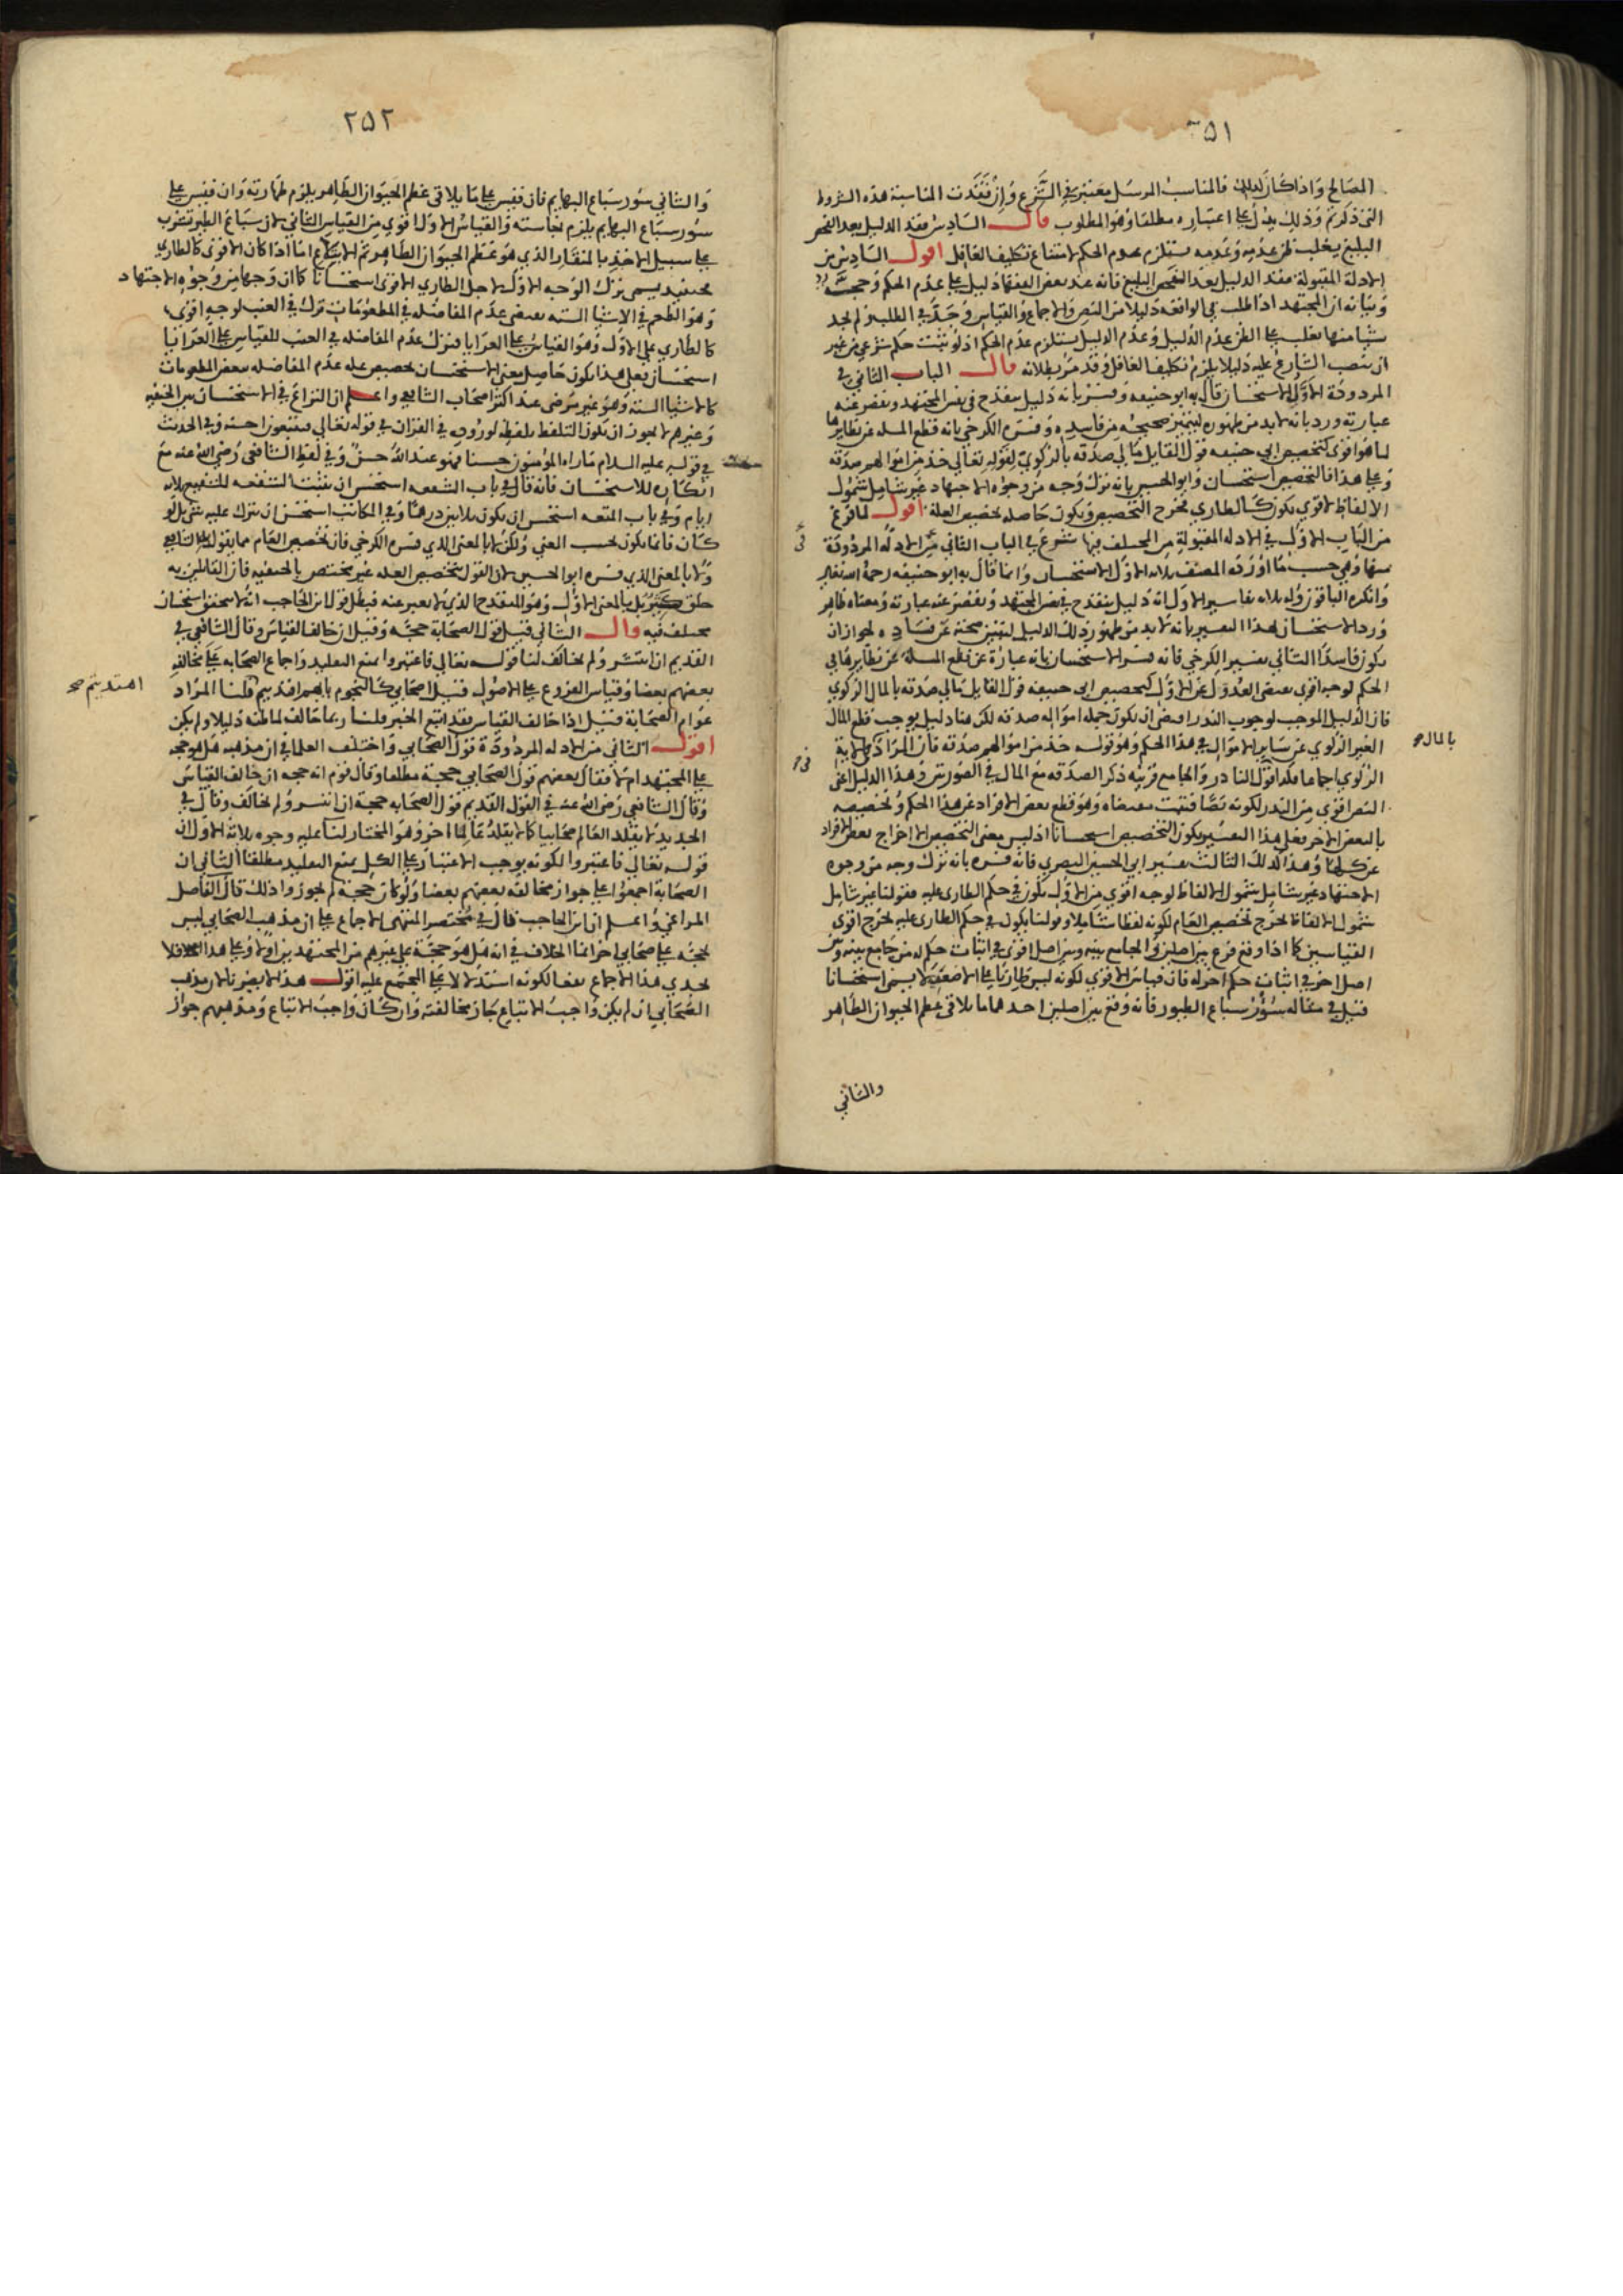 ٢٥١
المصالح واذا كان كذلك فالمناسب المرسل معتبر في الشرع وان فقدت المناسبة هذه الشروط
التي ذكرتم وذلك يدل على اعتباره مطلقا وهو المطلوب قال السادس فقد الدليل بعد التفحص
البليغ يغلب ظن عدمه وعدمه يستلزم عدم الحكم لامتناع تكليف الغافل اقول السادس من
الادلة المقبولة فقد الدليل بعد التفحص البليغ فانه عند بعض الفقها دليل على عدم الحكم وحجة
وبيانه ان المجتهد اذا طلب في الواقعه دليلا من النص والاجماع والقياس وجد في الطلب ولم يجد
شيا منها يغلب على الظن عدم الدليل وعدم الدليل يستلزم عدم الحكم اذ لو ثبت حكم شرعي من غير
ان ينصب الشارع عليه دليلا يلزم تكليف الغافل وقد مر بطلانه قال الباب الثاني في
المردودة الاول الاستحسان قال به ابو حنيفة وفسر بانه دليل ينقدح في نفس المجتهد وتقصر عنه
عبارته ورد بانه لا بد من ظهوره ليتميز صحيحه من فاسده وفسره الكرخي بانه قطع المسله عن نظايرها
لما هو اقوى كتخصيص ابي حنيفه قول القايل مالي صدقه بالزكوي لقوله تعالى خذ من اموالهم صدقة
وعلى هذا فالتخصيص استحسان وابو الحسين بانه ترك وجه من وجوه الاجتهاد غير شامل شمول
الالفاظ لاقوى يكون كالطاري فخرج التخصيص ويكون حاصله تخصيص العلة اقول لما فرغ
من الباب الاول في الادله المقبولة من المختلف فيها شرع في الباب الثاني من الادلة المردودة
منها وهي حسب ما اورده المصنف ثلاثه الاول الاستحسان وانما قال به ابو حنيفه رحمه الله تعالى
وانكره الباقون وله ثلاثه تفاسير الاول انه دليل ينقدح في نفس المجتهد وتقصر عنه عبارته ومعناه ظاهر
ورد الاستحسان بهذا التفسير بانه لا بد من ظهور ذلك الدليل ليتميز صحته عن فساده لجواز ان
يكون فاسدا الثاني تفسير الكرخي فانه فسر الاستحسان بانه عبارة عن قطع المسلة عن نظايرها في
الحكم لوجه اقوى يقتضي العدول عن الاول كتخصيص ابي حنيفه قول القايل مالي صدقه بالمال الزكوي
فان الدليل الموجب لوجوب النذر اقتضى ان يكون جمله امواله صدقه لكن هنا دليل يوجب قطع المال
الغير الزكوي عن ساير الاموال في هذا الحكم وهو قوله خذ من اموالهم صدقه فان المراد في الاية
الزكوي اجماعا فكذا قول الناذر والجامع قرينه ذكر الصدقه مع المال في الصورتين وهذا الدليل اعني
النص اقوى من النذر لكونه نصا فثبت مقتضاه وهو قطع بعض الافراد عن هذا الحكم وتخصيصه
بالبعض الاخر فعلى هذا التفسير يكون التخصيص استحسانا اذ ليس معنى التخصيص الا اخراج بعض الافراد
عن حكمها وهذا كذلك الثالث تفسير ابي الحسين البصري فانه فسره بانه ترك وجه من وجوه
الاجتهاد غير شامل شمول الالفاظ لوجه اقوى من الاول يكون في حكم الطاري عليه فقولنا غير شامل
شمول الالفاظ لخرج تخصيص العام لكونه لفظا شاملا وقولنا يكون في حكم الطاري عليه لخرج اقوى
القياسين كما اذا وقع فرع بين اصلين والجامع بينه وبين اصل اقوى في اثبات حكم له من جامع بينه وبين
اصل اخر في اثبات حكم اخر له فان قياس الاقوى لكونه ليس طاريا على الاضعف لا يسمى استحسانا
قيل في مثاله سؤر سباع الطيور فانه وقع بين اصلين احدهما ما يلاقي عظم الحيوان الطاهر
والثاني
بالمال
٢٥٢
والثاني سور سباع البهايم فان قيس على ما يلاقي عظم الحيوان الطاهر يلزم طهارته وان قيس على
سور سباع البهايم يلزم نجاسته والقياس الاول اقوى من القياس الثاني لان سباع الطير تشرب
على سبيل الاخذ بالمنقار الذي هو عظم الحيوان الطاهر ثم الابتلاع اما اذا كان الاقوى كالطاري
فحينيذ يسمى ترك الوجه الاول لاجل الطاري الاقوى استحسانا كما ان وجها من وجوه الاجتهاد
وهو الطعم في الاشيا الستة يقتضي عدم المفاضله في المطعومات ترك في العنب لوجه اقوى
كالطاري على الاول وهو القياس على العرايا فيترك عدم المفاضله في العنب للقياس على العرايا
استحسان فعلى هذا يكون حاصل معنى الاستحسان تخصيص عله عدم المفاضله ببعض المطعومات
كالاشيا الستة وهو غير مرضي عند اكثر اصحاب الشافعي واعلم ان النزاع في الاستحسان بين الحنفيه
وغيرهم لا يجوز ان يكون التلفظ بلفظه لوروده في القران في قوله تعالى فيتبعون احسنه وفي الحديث
في قوله عليه السلام ما راه المؤمنون حسنا فهو عند الله حسن وفي لفظ الشافعي رضي الله عنه مع
انكاره للاستحسان فانه قال في باب الشفعه استحسن ان يثبت للشفيع الشفعه ثلاثه
ايام وفي باب المتعه استحسن ان يكون ثلاثين درهما وفي المكاتب استحسن ان يترك عليه شي بل لو
كان فانما يكون بحسب المعنى ولكن لا بالمعنى الذي فسره الكرخي فان تخصيص العام مما يقول به الشافعي
ولا بالمعنى الذي فسره ابو الحسين لان القول بتخصيص العله غير مختص بالحنفيه فان القايلين به
خلق كثير بل بالمعنى الاول وهو المنقدح الذي لا يعبر عنه فبطل قول ابن الحاجب انه لا يتحقق استحسان
مختلف فيه قال الثاني قيل قول الصحابة حجة وقيل ان خالف القياس وقال الشافعي في
القديم ان انتشر ولم يخالف لنا قوله تعالى فاعتبروا يمنع التقليد واجماع الصحابه على مخالفه
بعضهم بعضا وقياس الفروع على الاصول قيل اصحابي كالنجوم بايهم اقتديتم قلنا المراد
عوام الصحابة قيل اذا خالف القياس فقد اتبع الخبر قلنا ربما خالف لما ظنه دليلا ولم يكن
اقول الثاني من الادله المردودة قول الصحابي واختلف العلما في ان مذهبه هل هو حجه
على المجتهد ام لا فقال بعضهم قول الصحابي حجة مطلقا وقال قوم انه حجه ان خالف القياس
وقال الشافعي رضي الله عنه في القول القديم قول الصحابه حجة ان انتشر ولم يخالف وقال في
الجديد لا يقلد العالم صحابيا كما لا يقلد عالما اخر وهو المختار لنا عليه وجوه ثلاثة الاول ان
قوله تعالى فاعتبروا لكونه يوجب الاعتبار على الكل يمنع التقليد مطلقا الثاني ان
الصحابة اجمعوا على جواز مخالفه بعضهم بعضا ولو كان حجة لم يجوزوا ذلك قال الفاضل
المراغي واعلم ان ابن الحاجب قال في مختصر المنتهى الاجماع على ان مذهب الصحابي ليس
بحجه على صحابي اخر انما الخلاف في انه هل هو حجة على غيرهم من المجتهدين او لا وعلى هذا الخلاف لا
يجدي هذا الاجماع نفعا لكونه استدلالا على المجمع عليه اقول هذا لا يضرنا لان مذهب
الصحابي ان لم يكن واجب الاتباع جاز مخالفته وان كان واجب الاتباع ومذهبهم جواز
اهتديتم صح